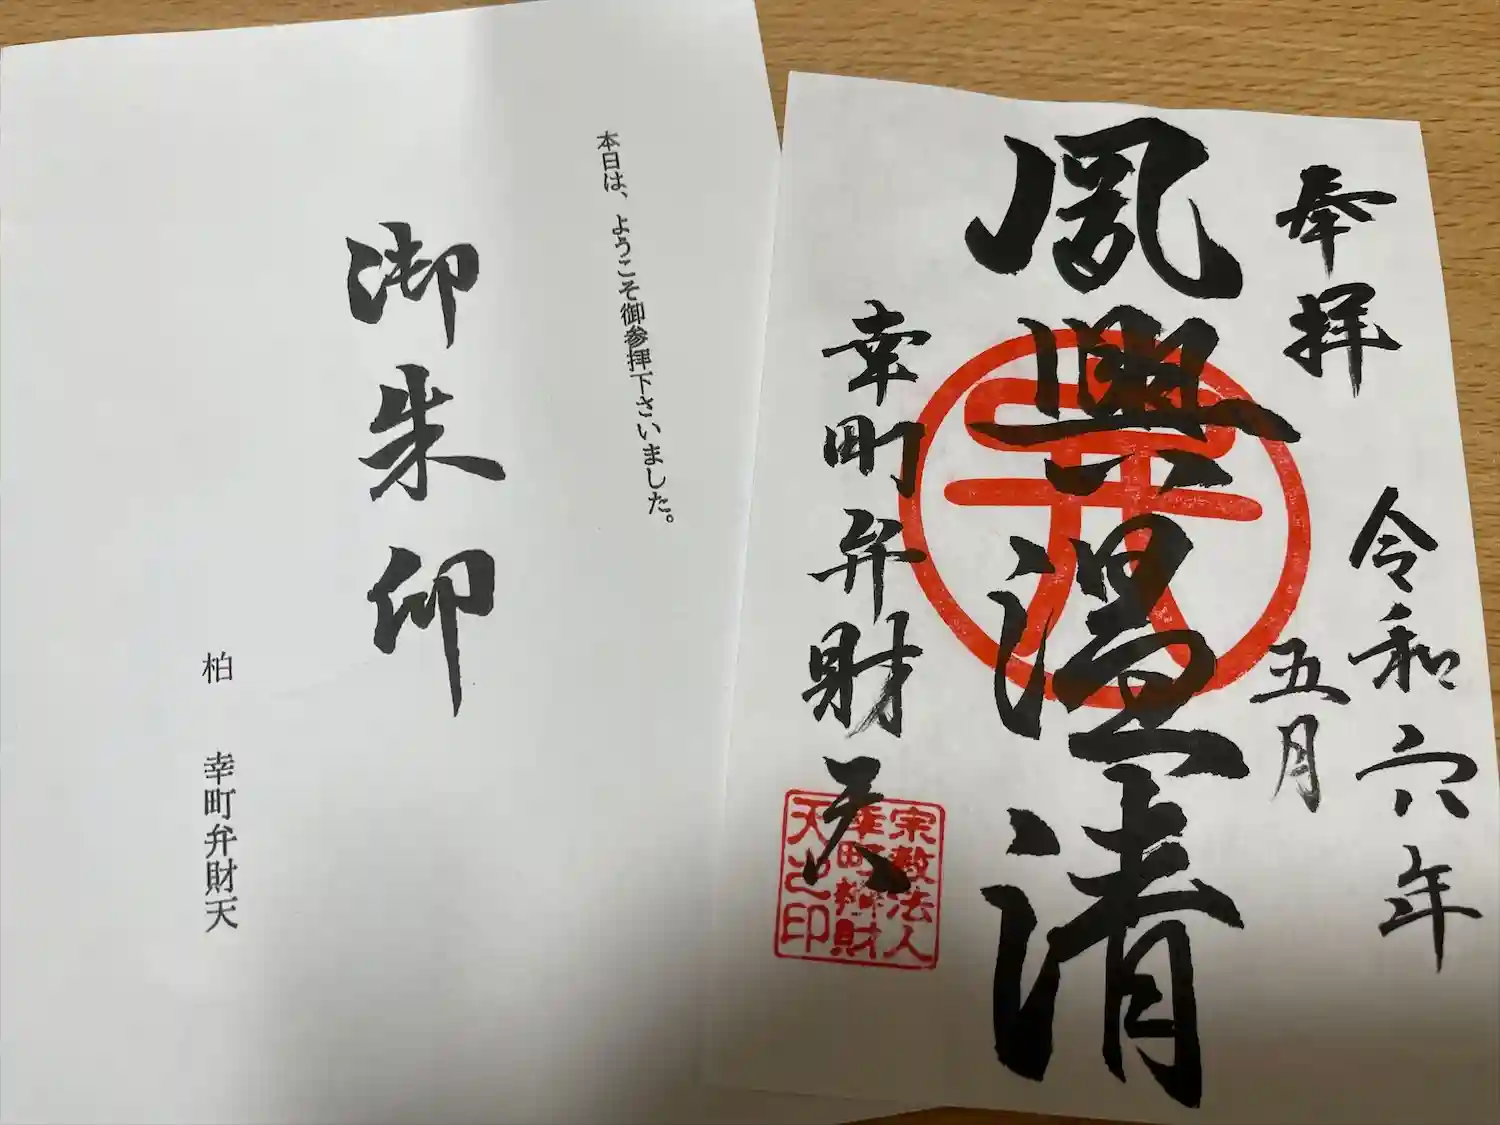 本日は、ようこそ御参拝下さいました。
御朱印
柏 幸町弁財天
奉拝
令和六年
五月
夙興温清
幸町弁財天
宗教法人
幸町辨財
天之印